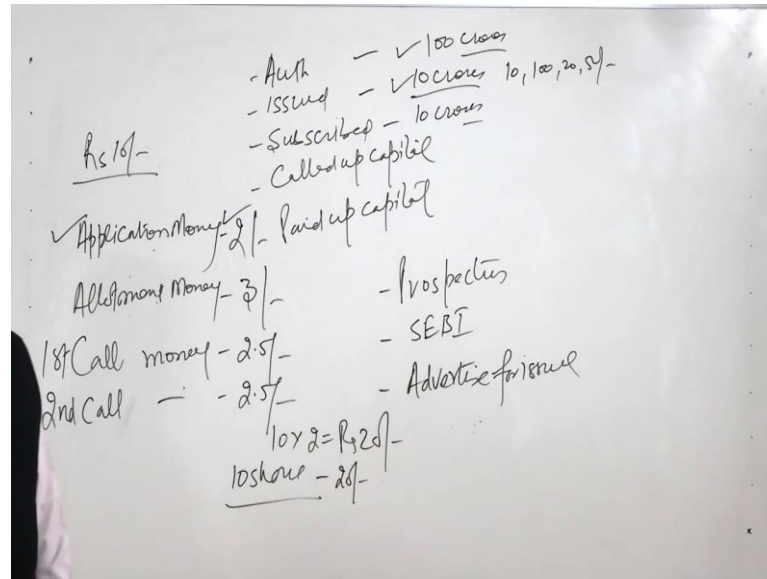 - Auth - ✓100 crores
- Issued - ✓10 crores 10, 100, 20, 5/-
- Subscribed - 10 crores
Rs 10/-
- Called up capital
✓Application Money✓- 2/- Paid up capital
Allotment Money - 3/-
- Prospectus
1st Call money - 2.5/-
- SEBI
2nd Call — - 2.5/-
- Advertise for issue
10 x 2 = Rs 20/-
10 share - 20/-